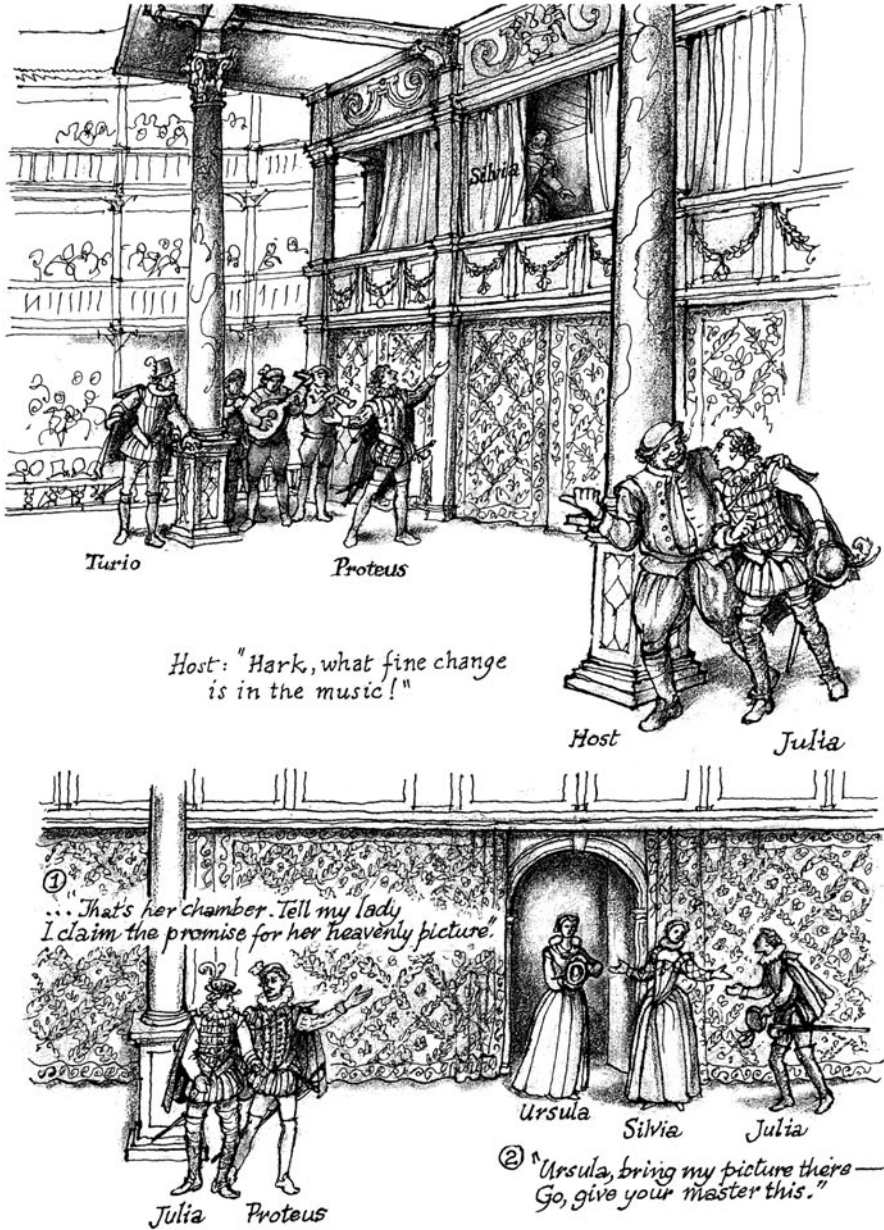 Silvia
Turio
Proteus
Host: "Hark, what fine change
is in the music!"
Host
Julia
①
..."That's her chamber. Tell my lady
I claim the promise for her heavenly picture"
Ursula
Silvia
Julia
Julia
Proteus
② "Ursula, bring my picture there—
Go, give your master this."